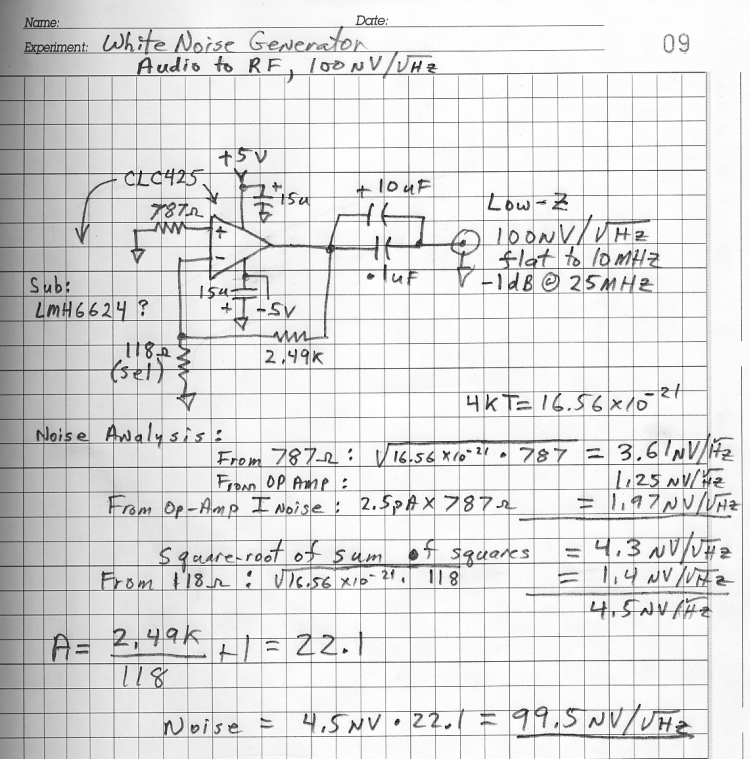 Name: Date:
Experiment: White Noise Generator 09
Audio to RF, 100NV/√Hz
+5V
CLC425
+ 15u
787Ω
+
-
+ 10uF
.1uF
Low-Z
100NV/√Hz
flat to 10MHz
-1dB @ 25MHz
Sub:
LMH6624?
15u
+
-5V
2.49K
118Ω
(sel)
4KT= 16.56 x10^-21
Noise Analysis:
From 787Ω: √16.56 x10^-21 • 787 = 3.61NV/√Hz
From OP AMP: 1.25 NV/√Hz
From Op-Amp I Noise: 2.5pA X 787Ω = 1.97NV/√Hz
Square-root of sum of squares = 4.3 NV/√Hz
From 118Ω: √16.56 x10^-21 • 118 = 1.4 NV/√Hz
4.5NV/√Hz
A= 2.49K/118 +1 = 22.1
Noise = 4.5NV • 22.1 = 99.5 NV/√Hz